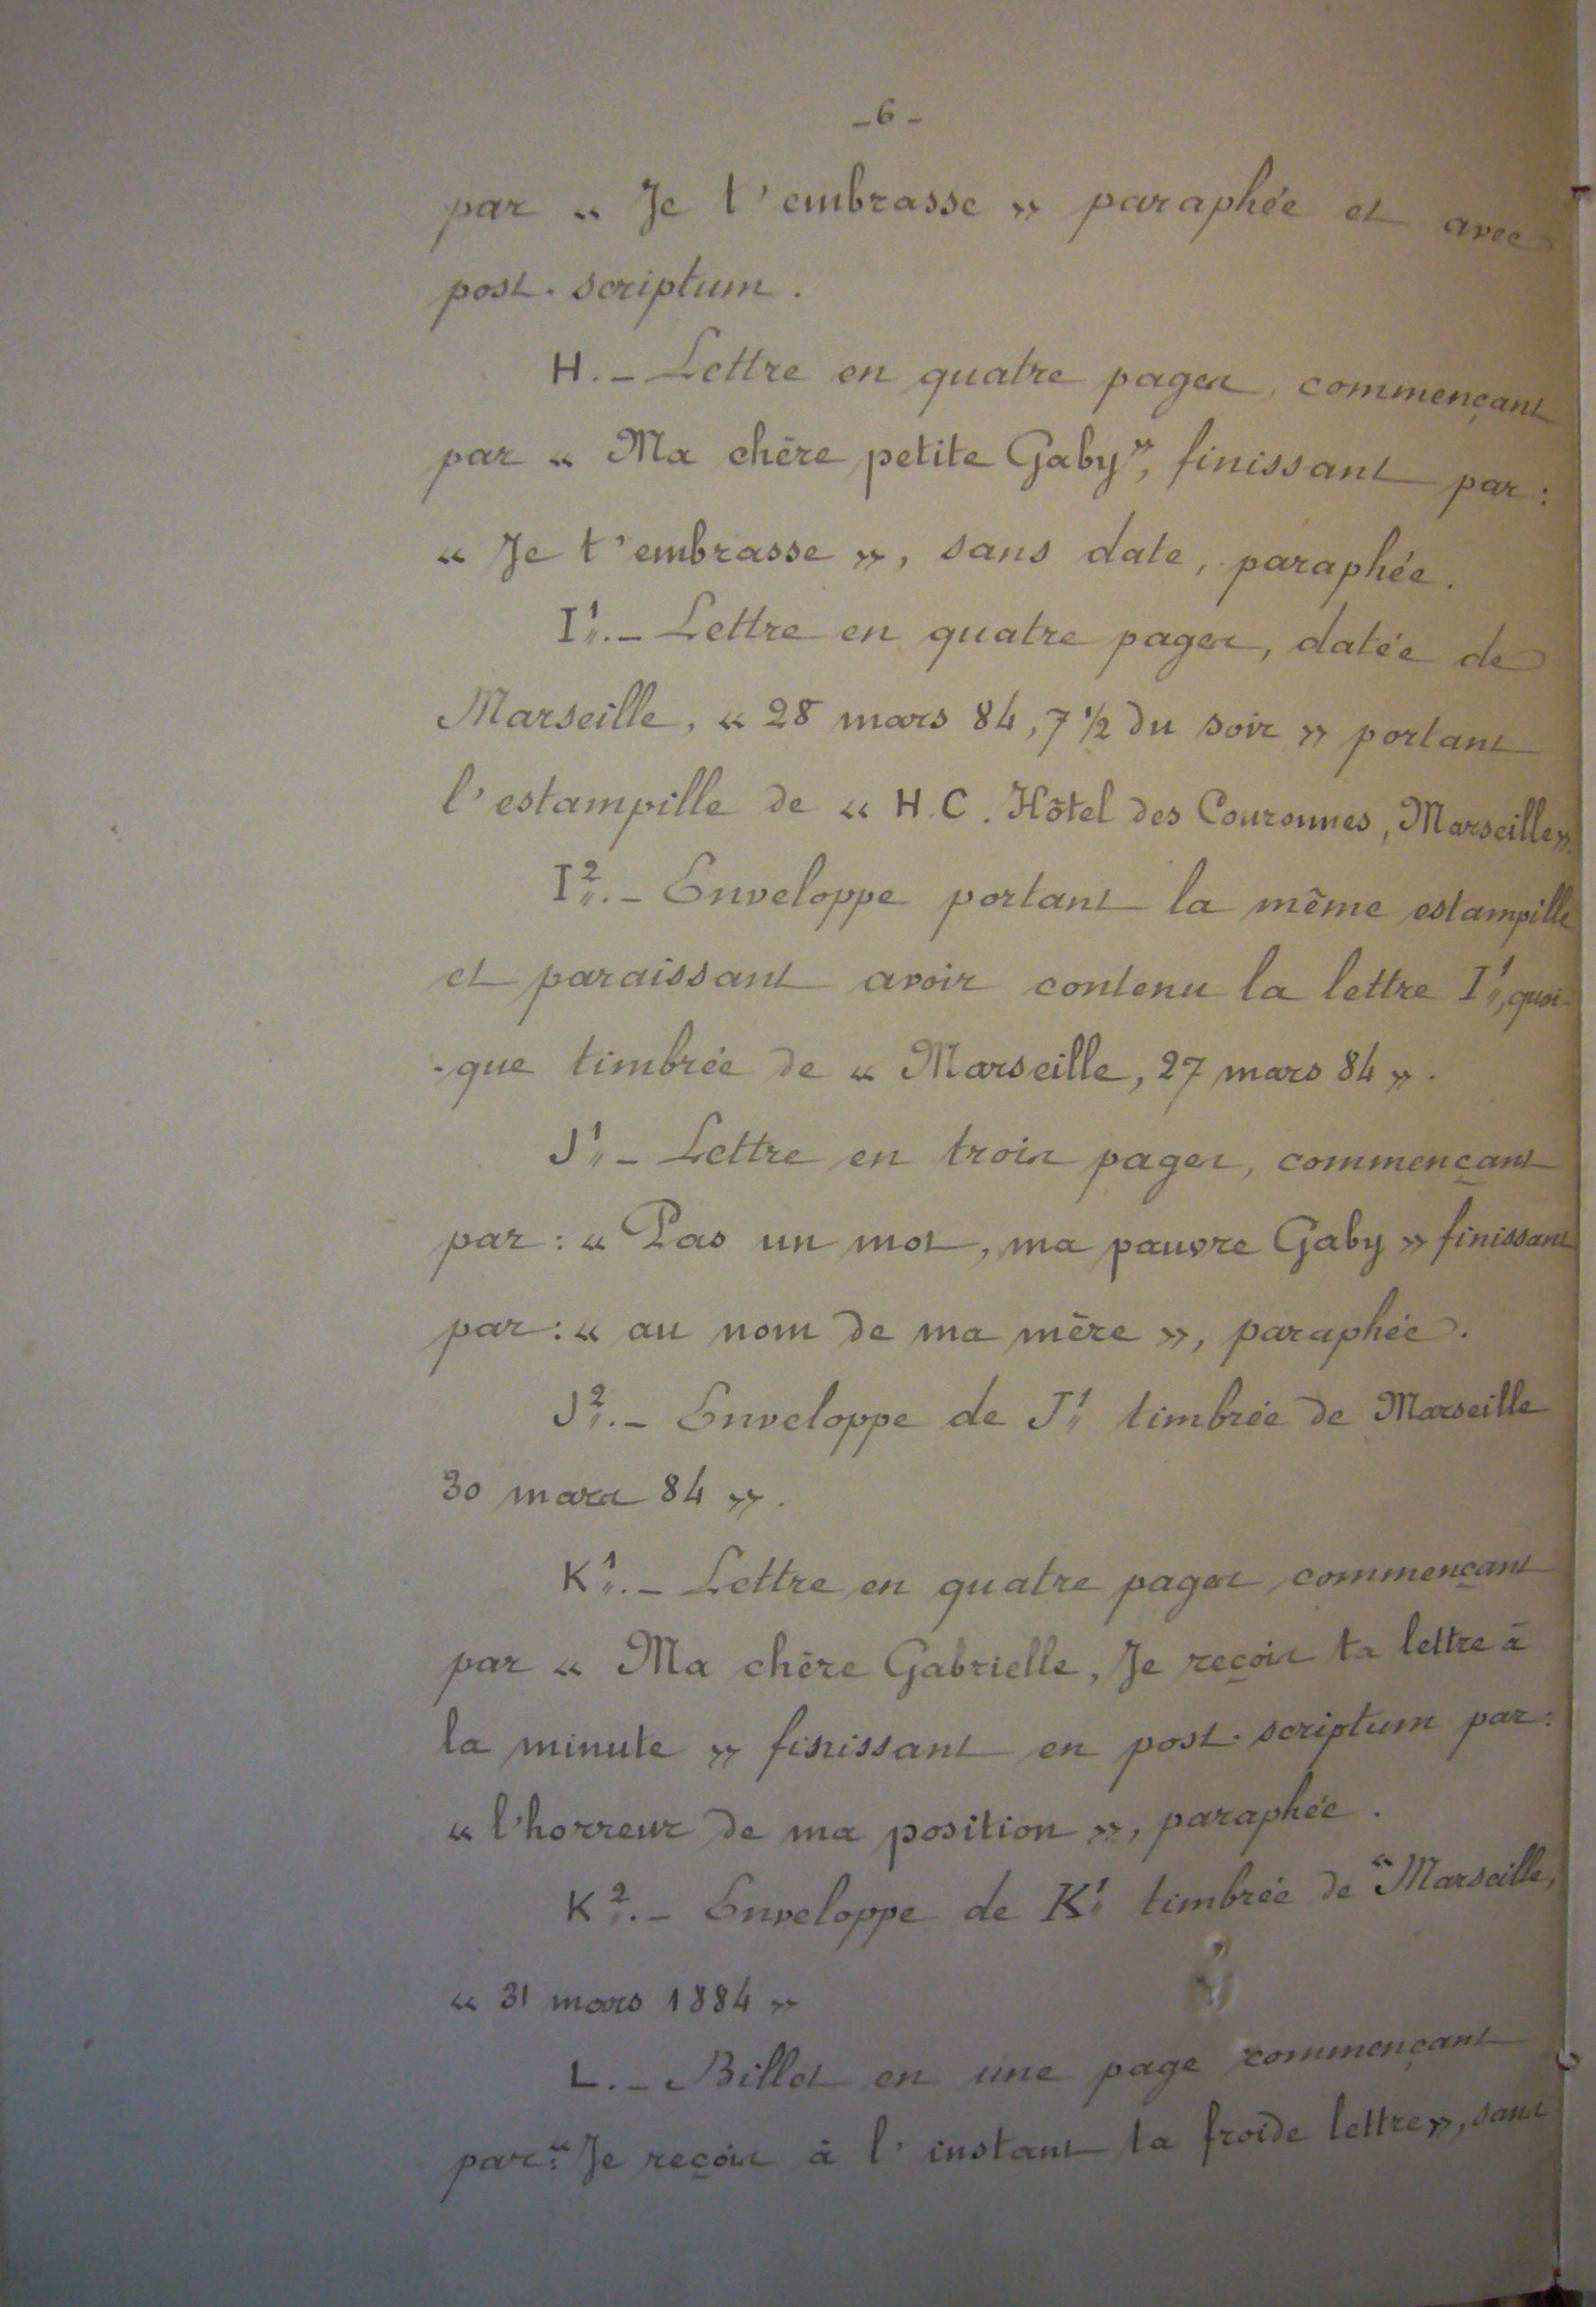 -6-
par « Je t'embrasse » paraphée et avec
post-scriptum.
H. - Lettre en quatre pages, commençant
par « Ma chère petite Gaby », finissant par :
« Je t'embrasse », sans date, paraphée.
I¹. - Lettre en quatre pages, datée de
Marseille, « 28 mars 84, 7 ½ du soir » portant
l'estampille de « H. C. Hôtel des Couronnes, Marseille ».
I². - Enveloppe portant la même estampille
et paraissant avoir contenu la lettre I¹, quoi-
-que timbrée de « Marseille, 27 mars 84 ».
J¹ - Lettre en trois pages, commençant
par : « Pas un mot, ma pauvre Gaby » finissant
par : « au nom de ma mère », paraphée.
J². - Enveloppe de J¹ timbrée de Marseille
30 mars 84 ».
K¹. - Lettre en quatre pages commençant
par « Ma chère Gabrielle, Je reçois ta lettre à
la minute » finissant en post-scriptum par :
« l'horreur de ma position », paraphée.
K². - Enveloppe de K¹ timbrée de « Marseille,
« 31 mars 1884 »
L. - Billet en une page commençant
par : « Je reçois à l'instant ta froide lettre », sans